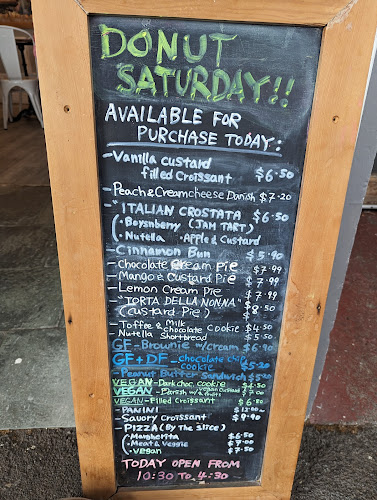 DONUT
SATURDAY!!
AVAILABLE FOR
PURCHASE TODAY:
- Vanilla custard
filled Croissant $6.50
- Peach & Creamcheese Danish $7.20
- "ITALIAN CROSTATA $6.50
(• Boysnberry (JAM TART)
• Nutella • Apple & Custard
- Cinnamon Bun $5.90
- Chocolate Cream Pie $7.99
- Mango & Custard Pie $7.99
- Lemon Cream Pie $7.99
- "TORTA DELLA NONNA" $8.50
(Custard Pie)
- Toffee & Milk Chocolate Cookie $4.50
- Nutella Shortbread $5.50
GF - Brownie w/cream $6.90
GF + DF - chocolate chip cookie $5.20
- Peanut Butter Sandwich $5.20
VEGAN - Dark choc. cookie $4.50
VEGAN - Danish w/ vegan custard & fruits $7.00
VEGAN - Filled Croissant $6.80
- PANINI $12.00
- Savory Croissant $9.90
- PIZZA (By THE Slice)
(• Margherita $6.50
• Meat & Veggie $7.00
• vegan $7.50
TODAY OPEN FROM
10:30 TO 4:30